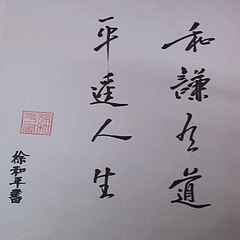 和謙道
平達人生
徐和平書